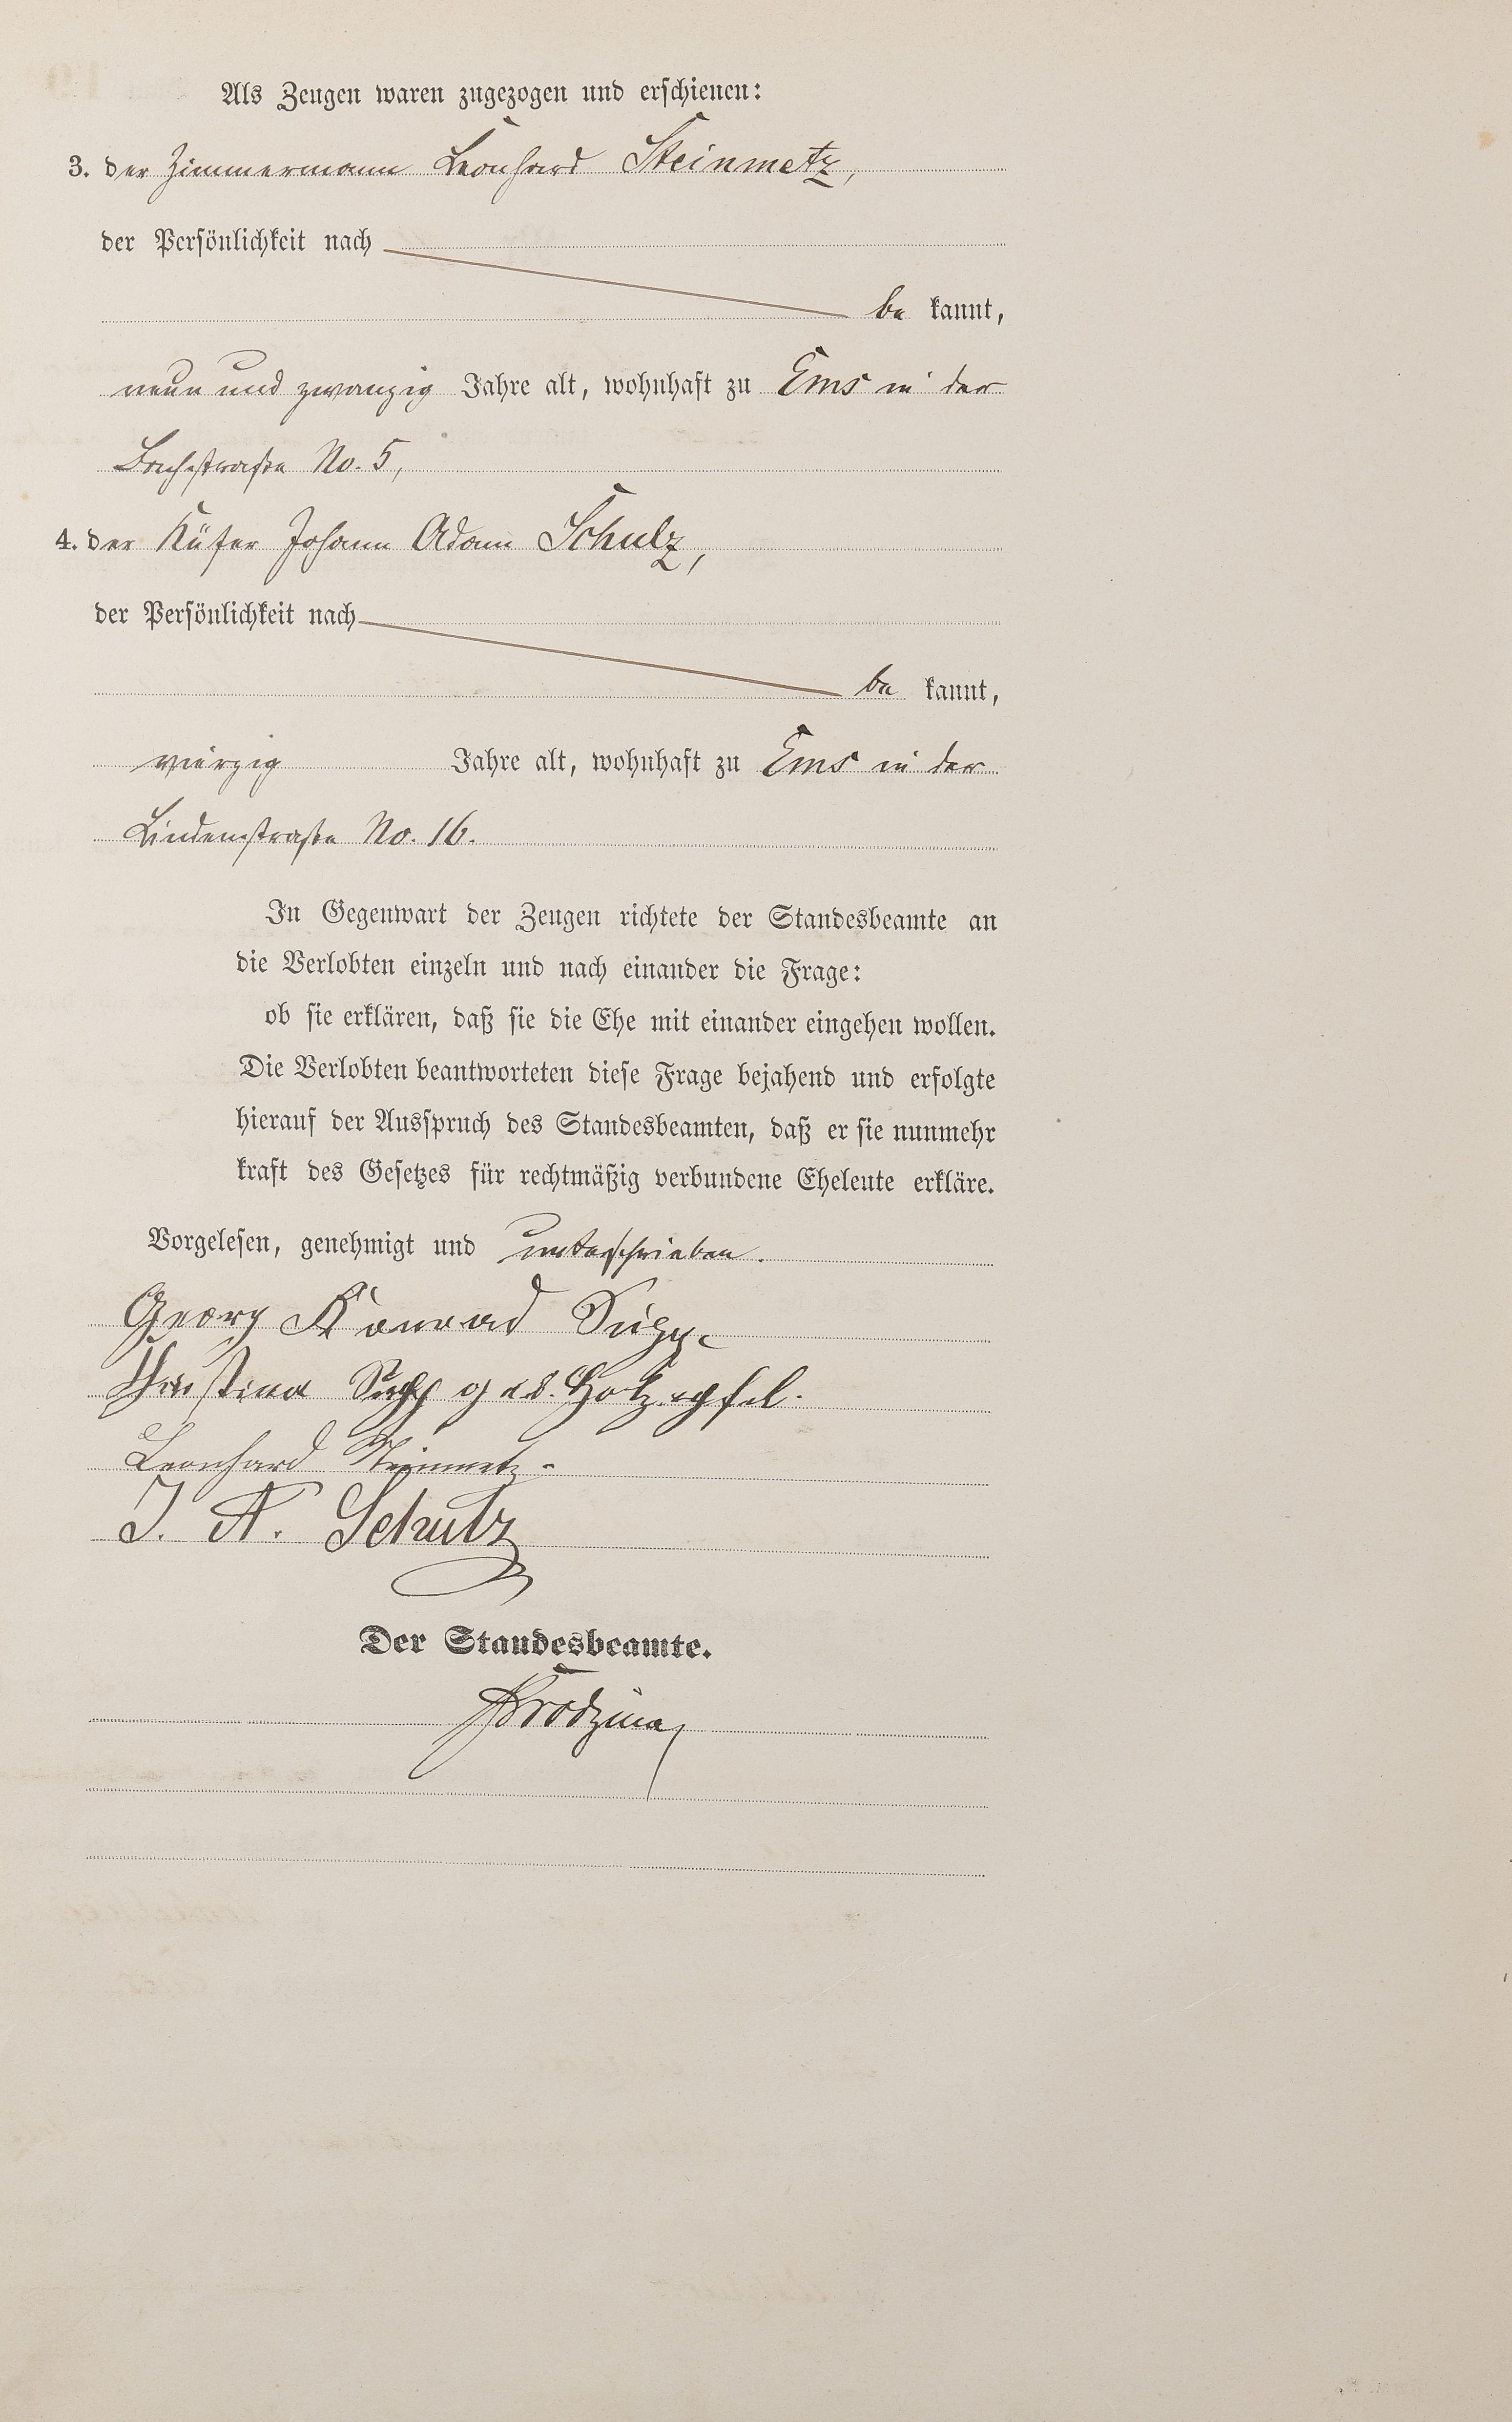 Als Zeugen waren zugezogen und erschienen:
3. der Zimmermann Leonhard Steinmetz,
der Persönlichkeit nach
be kannt,
neun und zwanzig Jahre alt, wohnhaft zu Ems in der
Bachstraße No. 5,
4. der Küfer Johann Adam Schulz,
der Persönlichkeit nach
be kannt,
vierzig Jahre alt, wohnhaft zu Ems in der
Lindenstraße No. 16.
In Gegenwart der Zeugen richtete der Standesbeamte an
die Verlobten einzeln und nach einander die Frage:
ob sie erklären, daß sie die Ehe mit einander eingehen wollen.
Die Verlobten beantworteten diese Frage bejahend und erfolgte
hierauf der Ausspruch des Standesbeamten, daß er sie nunmehr
kraft des Gesetzes für rechtmäßig verbundene Eheleute erkläre.
Vorgelesen, genehmigt und unterschrieben.
Georg Konrad Supp
Christina Supp geb. Holzapfel.
Leonhard Steinmetz
J. A. Schulz
Der Standesbeamte.